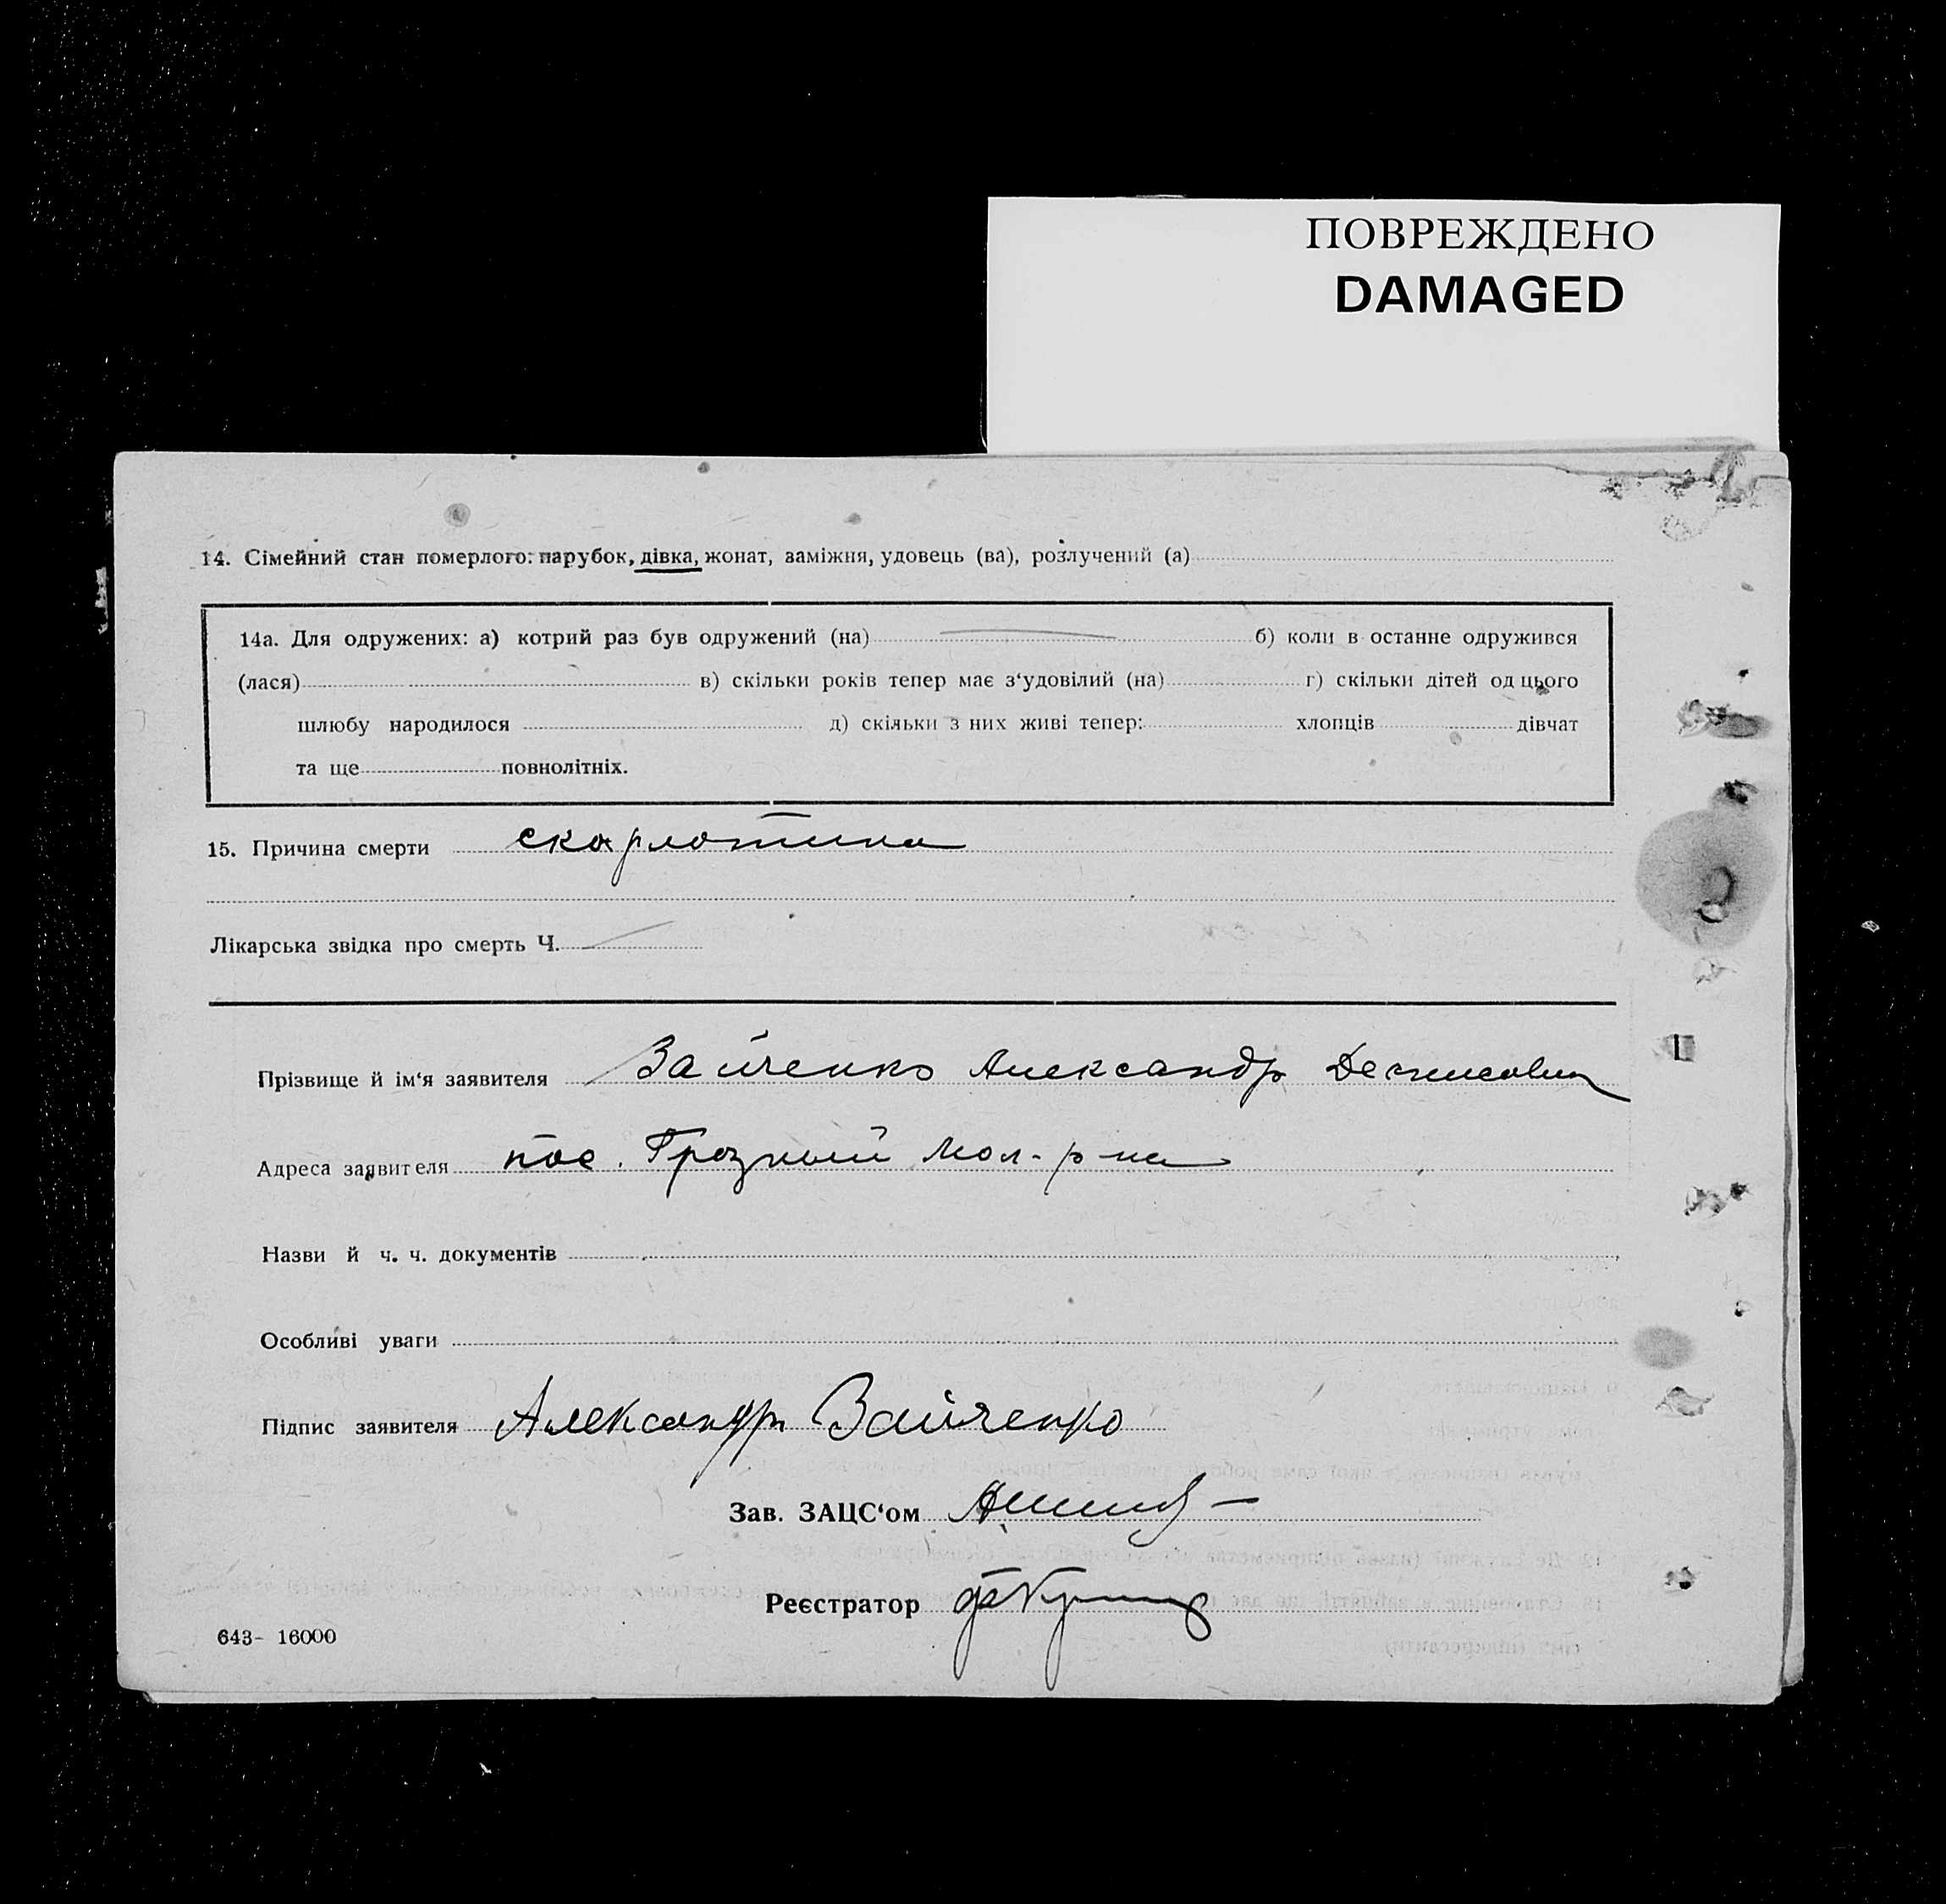 ПОВРЕЖДЕНО
DAMAGED
14. Сімейний стан померлого: парубок, дівка, жонат, заміжня, удовець (ва), розлучений (а)
14а. Для одружених: а) котрий раз був одружений (на) б) коли в останнє одружився
(лася) в) скільки років тепер має з‘удовілий (на) г) скільки дітей од цього
шлюбу народилося д) скільки з них живі тепер: хлопців дівчат
та ще повнолітніх.
15. Причина смерти скарлотина
Лікарська звідка про смерть Ч.
Прізвище й ім‘я заявителя Зайченко Александр Денисович
Адреса заявителя пос. Грозный Мол. р-на
Назви й ч. ч. документів
Особливі уваги
Підпис заявителя Александр Зайченко
Зав. ЗАЦС‘ом
Реєстратор
643- 16000